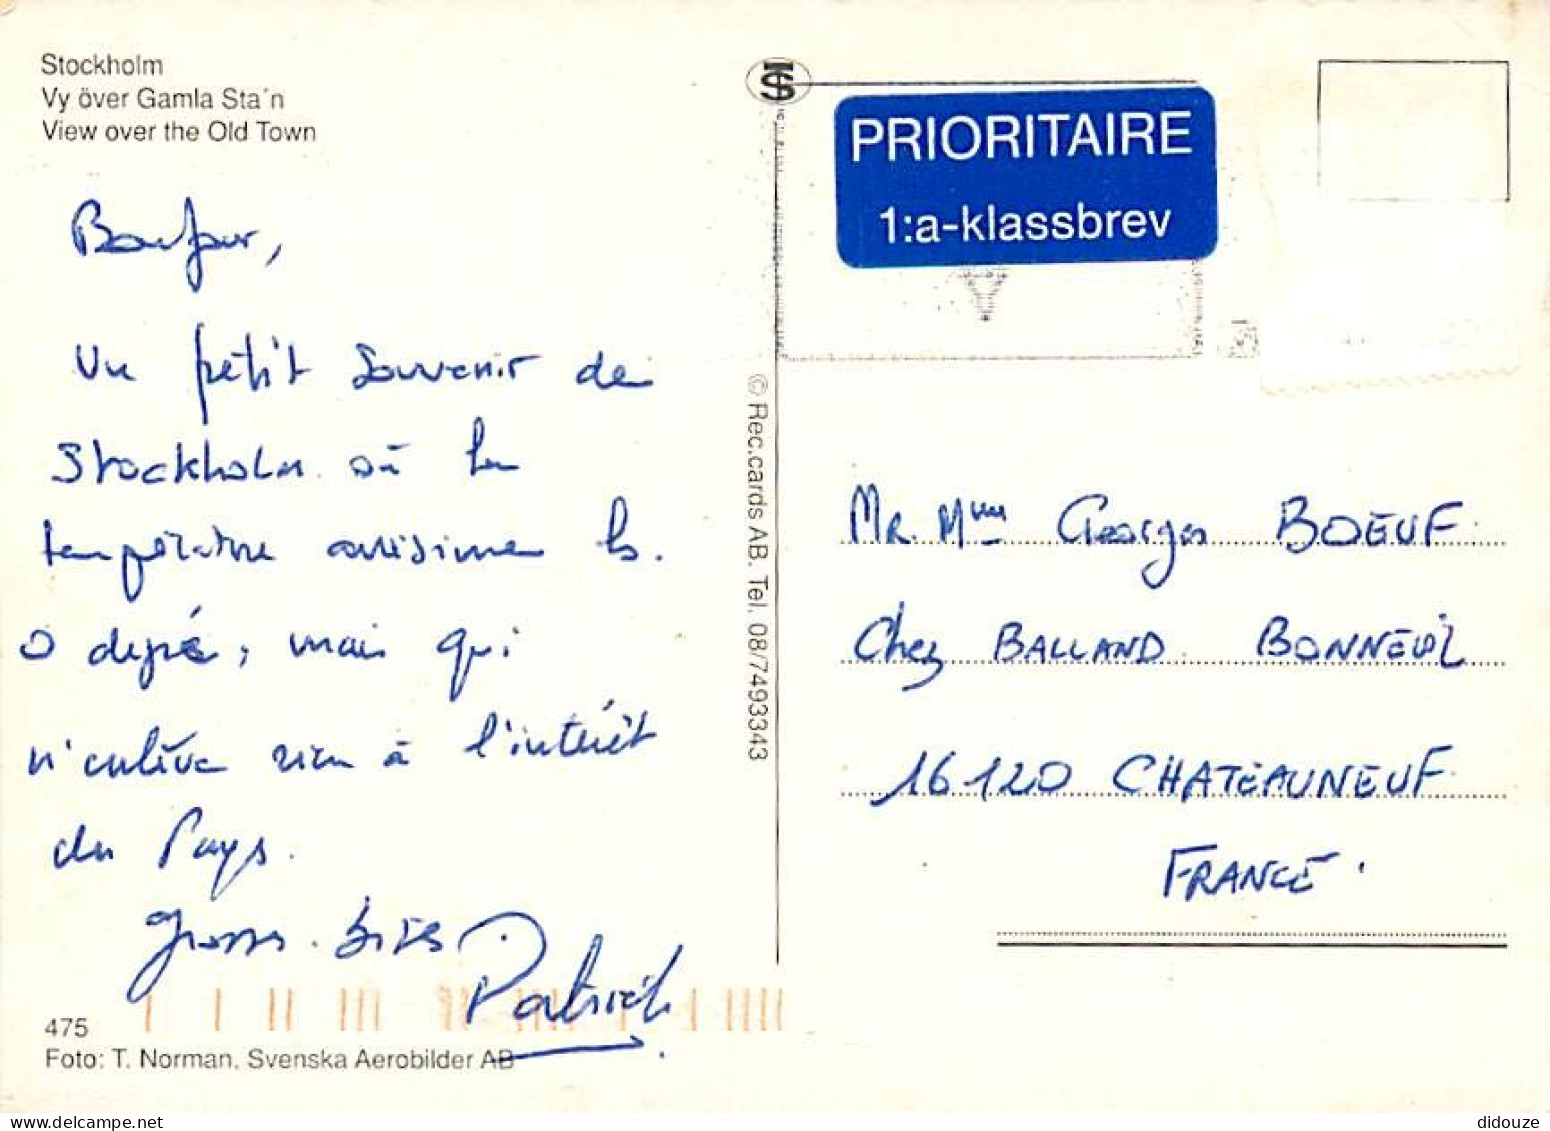 Stockholm
Vy över Gamla Sta´n
View over the Old Town
Bonjour,
Un petit souvenir de
Stockholm où la
température avoisine les
0 degré, mais qui
n'enlève rien à l'intérêt
du Pays.
Grosses bises
Patrick
475
Foto: T. Norman. Svenska Aerobilder AB
© Rec.cards AB. Tel. 08/7493343
PRIORITAIRE
1:a-klassbrev
Mr. Mme Georges BOEUF
Chez BALLAND BONNEUIL
16120 CHATEAUNEUF
FRANCE.
didouze